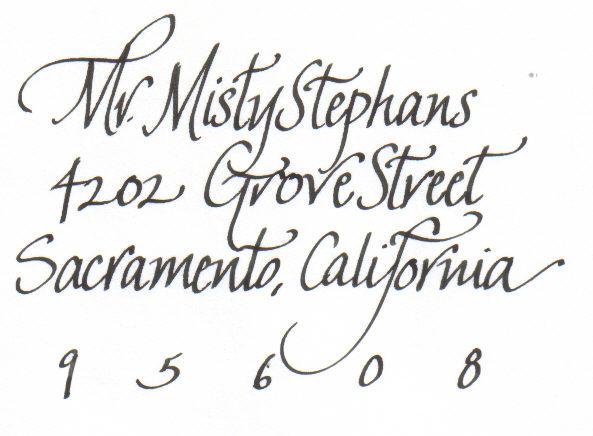 Mr. Misty Stephans
4202 Grove Street
Sacramento, California
9 5 6 0 8